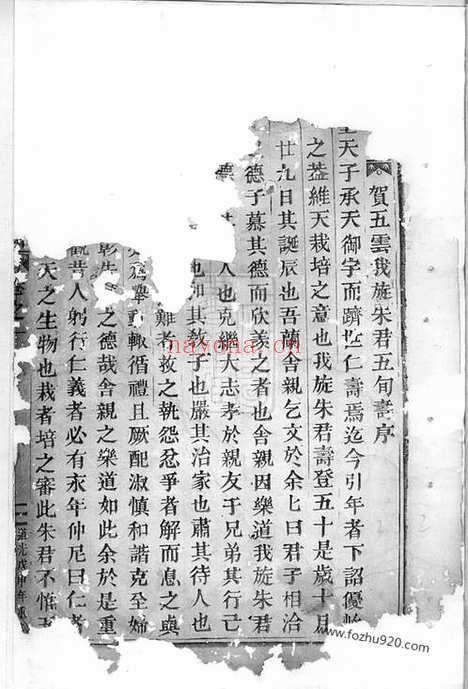 賀五雲我旋朱君五旬壽序
天子承天御宇而躋世仁壽焉迄今引年者下詔優
之蓋維天栽培之意也我旋朱君壽登五十是歲十月
廿九日其誕辰也吾蘭舍親乞文於余七曰君子相洽
德子慕其德而欣羨之者也舍親因樂道我旋朱君
人也克繼大志孝於親友于兄弟其行己
也和其教子也嚴其治家也肅其待人也
難者救之執怨忿爭者解而息之與
輒循禮且厥配淑慎和諧克全婦
之德哉舍親之樂道如此余於是重
觀昔人躬行仁義者必有永年仲尼曰仁者
天之生物也栽者培之審此朱君不惟
道光戊申年重
nayona.cn
www.fozhu920.com